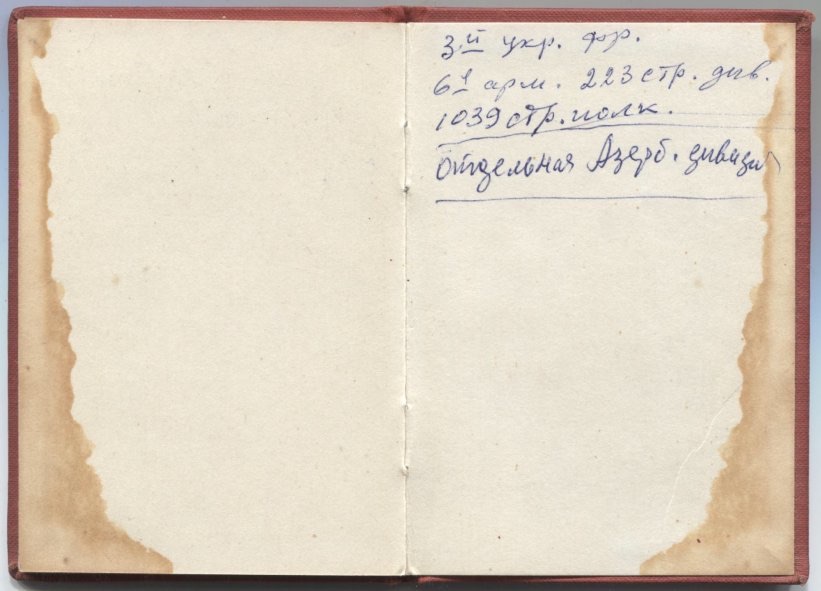 3й укр. фр.
6я арм. 223 стр. див.
1039 стр. полк.
Отдельная Азерб. дивизия